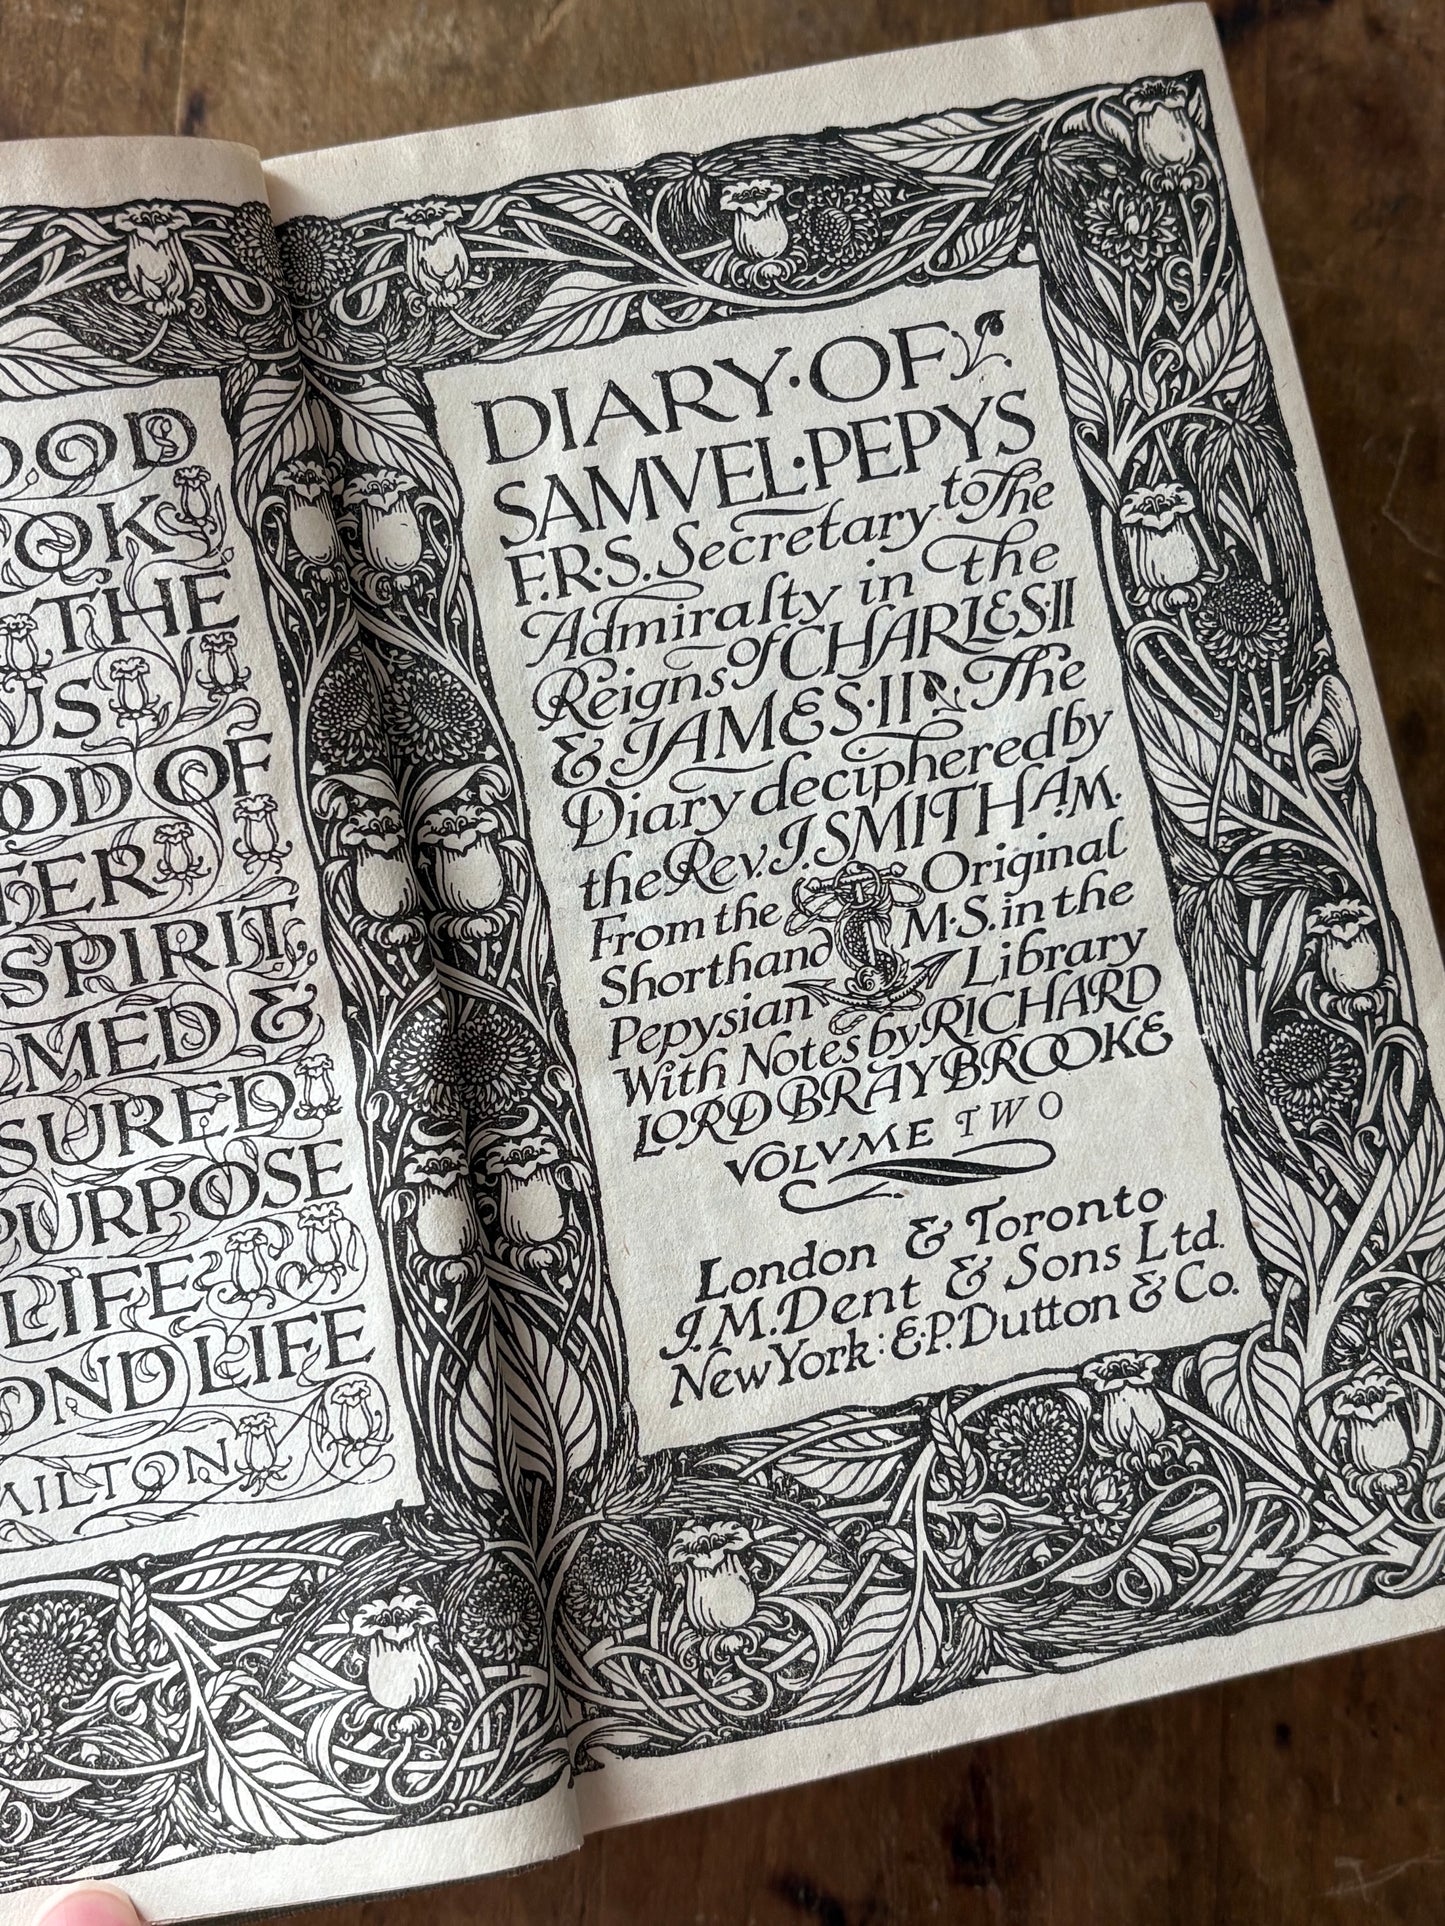 OOD
OOK
THE
US
OOD OF
TER
SPIRIT,
LMED &
SURED
PURPOSE
LIFE
OND LIFE
MILTON
DIARY·OF
SAMVEL·PEPYS
F.R·S. Secretary to The
Admiralty in the
Reigns of CHARLES·II
& JAMES·II The
Diary deciphered by
the Rev. J. SMITH A.M.
From the Original
Shorthand M·S. in the
Pepysian Library
With Notes by RICHARD
LORD BRAYBROOKE
VOLVME TWO
London & Toronto
J.M. Dent & Sons Ltd.
New York: E.P. Dutton & Co.